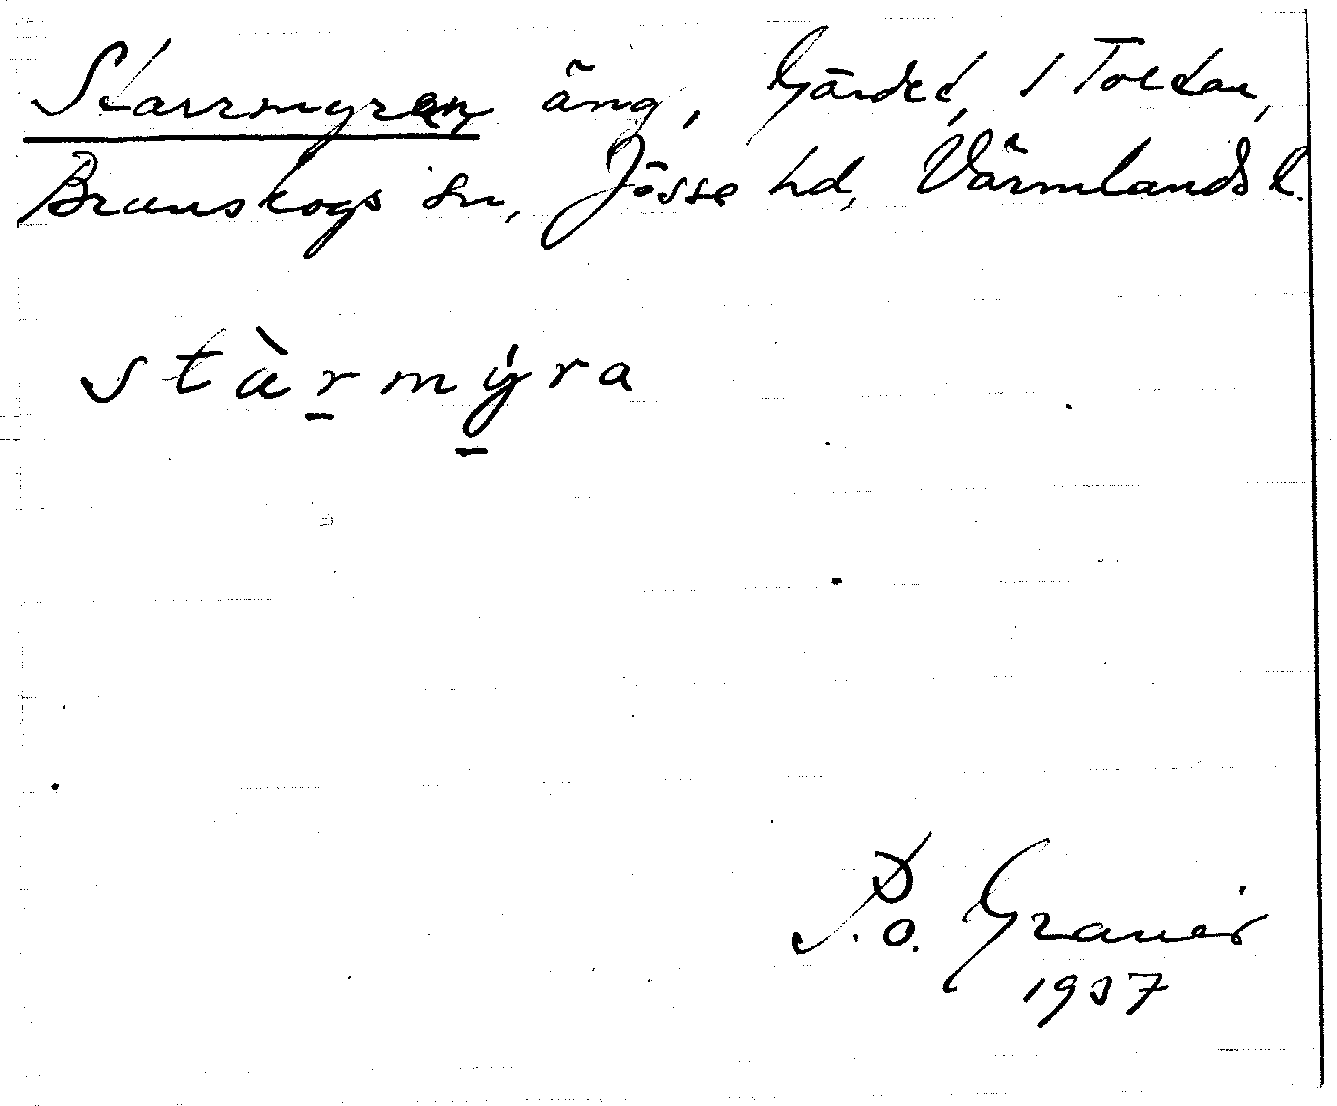 Starrmyren äng, Gärdet, 1 Tolita,
Brunskogs sn, Jösse hd, Värmlands l.
stàrmýra
P.O. Granér
1937